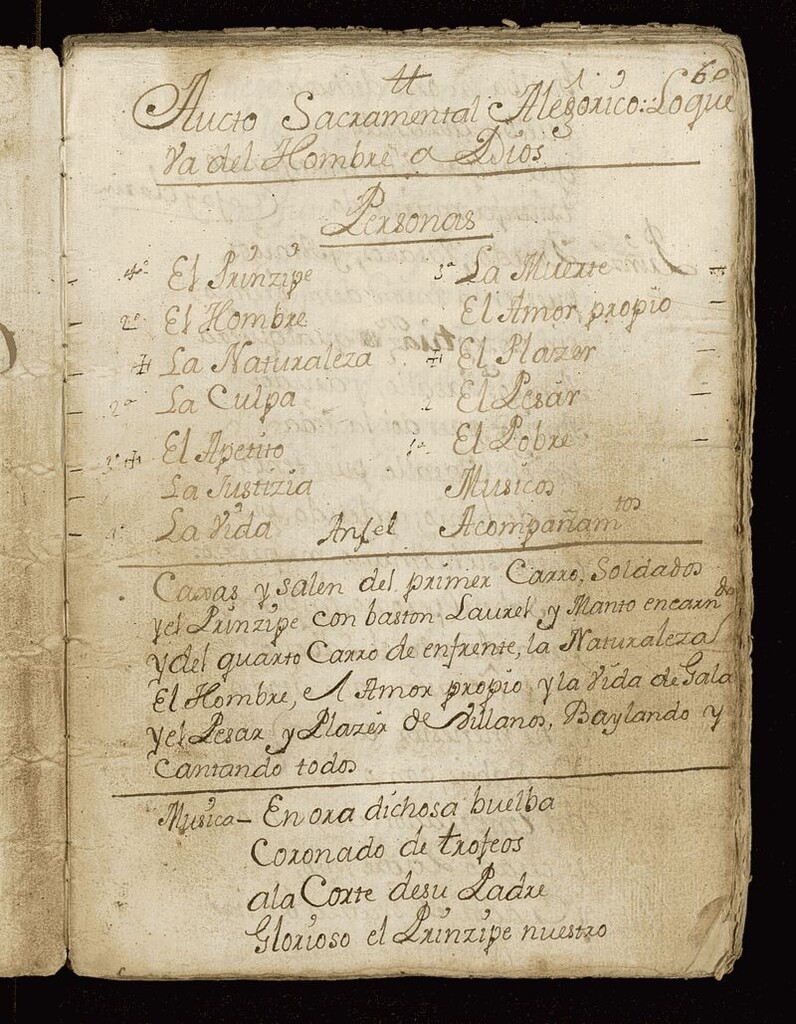 60
Aucto Sacramental Alegorico: Lo que
va del Hombre a Dios
Personas
El Prinzipe 3ª La Muerte
2º El Hombre El Amor propio
La Naturaleza El Plazer
2ª La Culpa El Pesar
El Apetito El Pobre
La Justizia Musicos
La Vida Anjel Acompañamtos
Caxas y salen del primer Carro, Soldados
y el Prinzipe con baston Laurel y Manto encarndo
y del quarto Carro de enfrente, la Naturaleza
El Hombre, el Amor propio y la Vida de Gala
y el Pesar y Plazer de Villanos, Baylando y
Cantando todos
Musica - En ora dichosa buelba
Coronado de trofeos
ala Corte desu Padre
Glorioso el Prinzipe nuestro